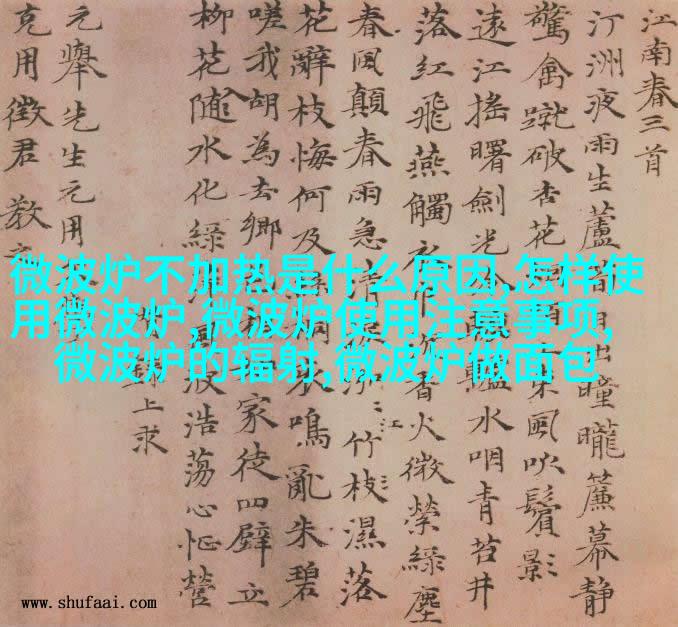 江南春三首
汀洲夜雨生蘆出瞳曨簾幕靜
驚禽蹴破杏花東風吹鬢影
遠江搖曙劍光水咽青苔井
落紅飛燕觸香火微縈綠塵
春風顛春雨急清江竹枝濕落
花辭枝悔何及鳴亂朱碧
嗟我胡為去鄉家徒四壁立
柳花隨水化綠波浩蕩心怔營
上求
元舉先生元用
克用徵君 教
微波炉不加热是什么原因,怎样使
用微波炉,微波炉使用注意事项,
微波炉的辐射,微波炉做面包
www.shufaai.com